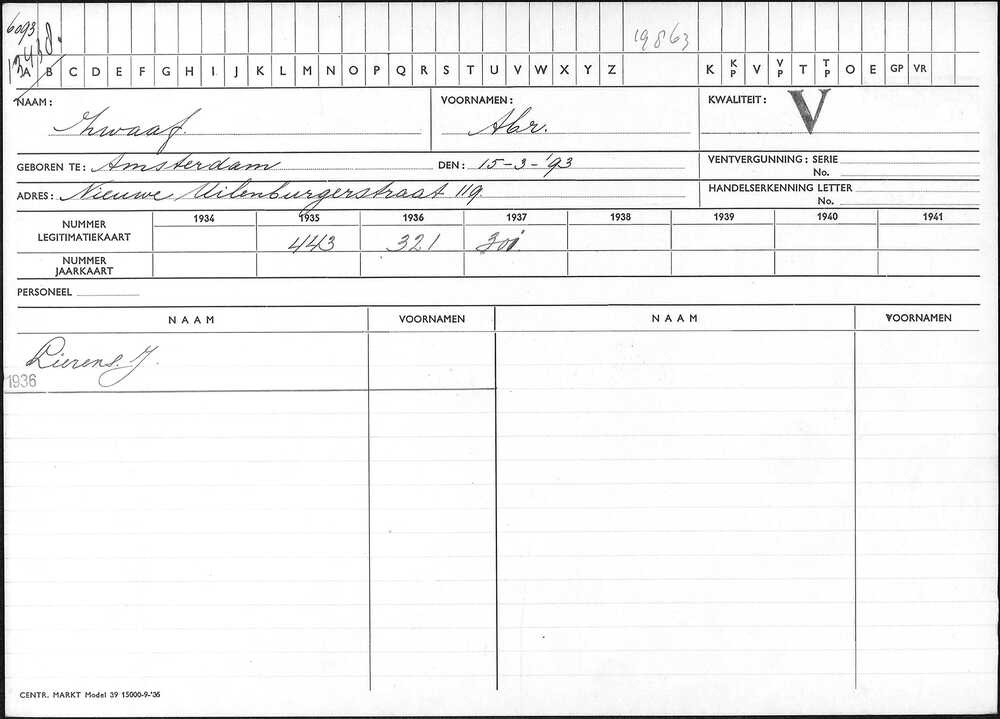 6093
13438.
19863
A B C D E F G H I J K L M N O P Q R S T U V W X Y Z K KP V VP T TP O E GP VR
NAAM: Zwaaf. VOORNAMEN: Abr. KWALITEIT: V
GEBOREN TE: Amsterdam DEN: 15-3-'93 VENTVERGUNNING: SERIE
No.
ADRES: Nieuwe Uilenburgerstraat 119. HANDELSERKENNING LETTER
No.
1934 1935 1936 1937 1938 1939 1940 1941
NUMMER LEGITIMATIEKAART 443 321 301
NUMMER JAARKAART
PERSONEEL
NAAM VOORNAMEN NAAM VOORNAMEN
Lierens. J.
1936
CENTR. MARKT Model 39 15000-9-'35